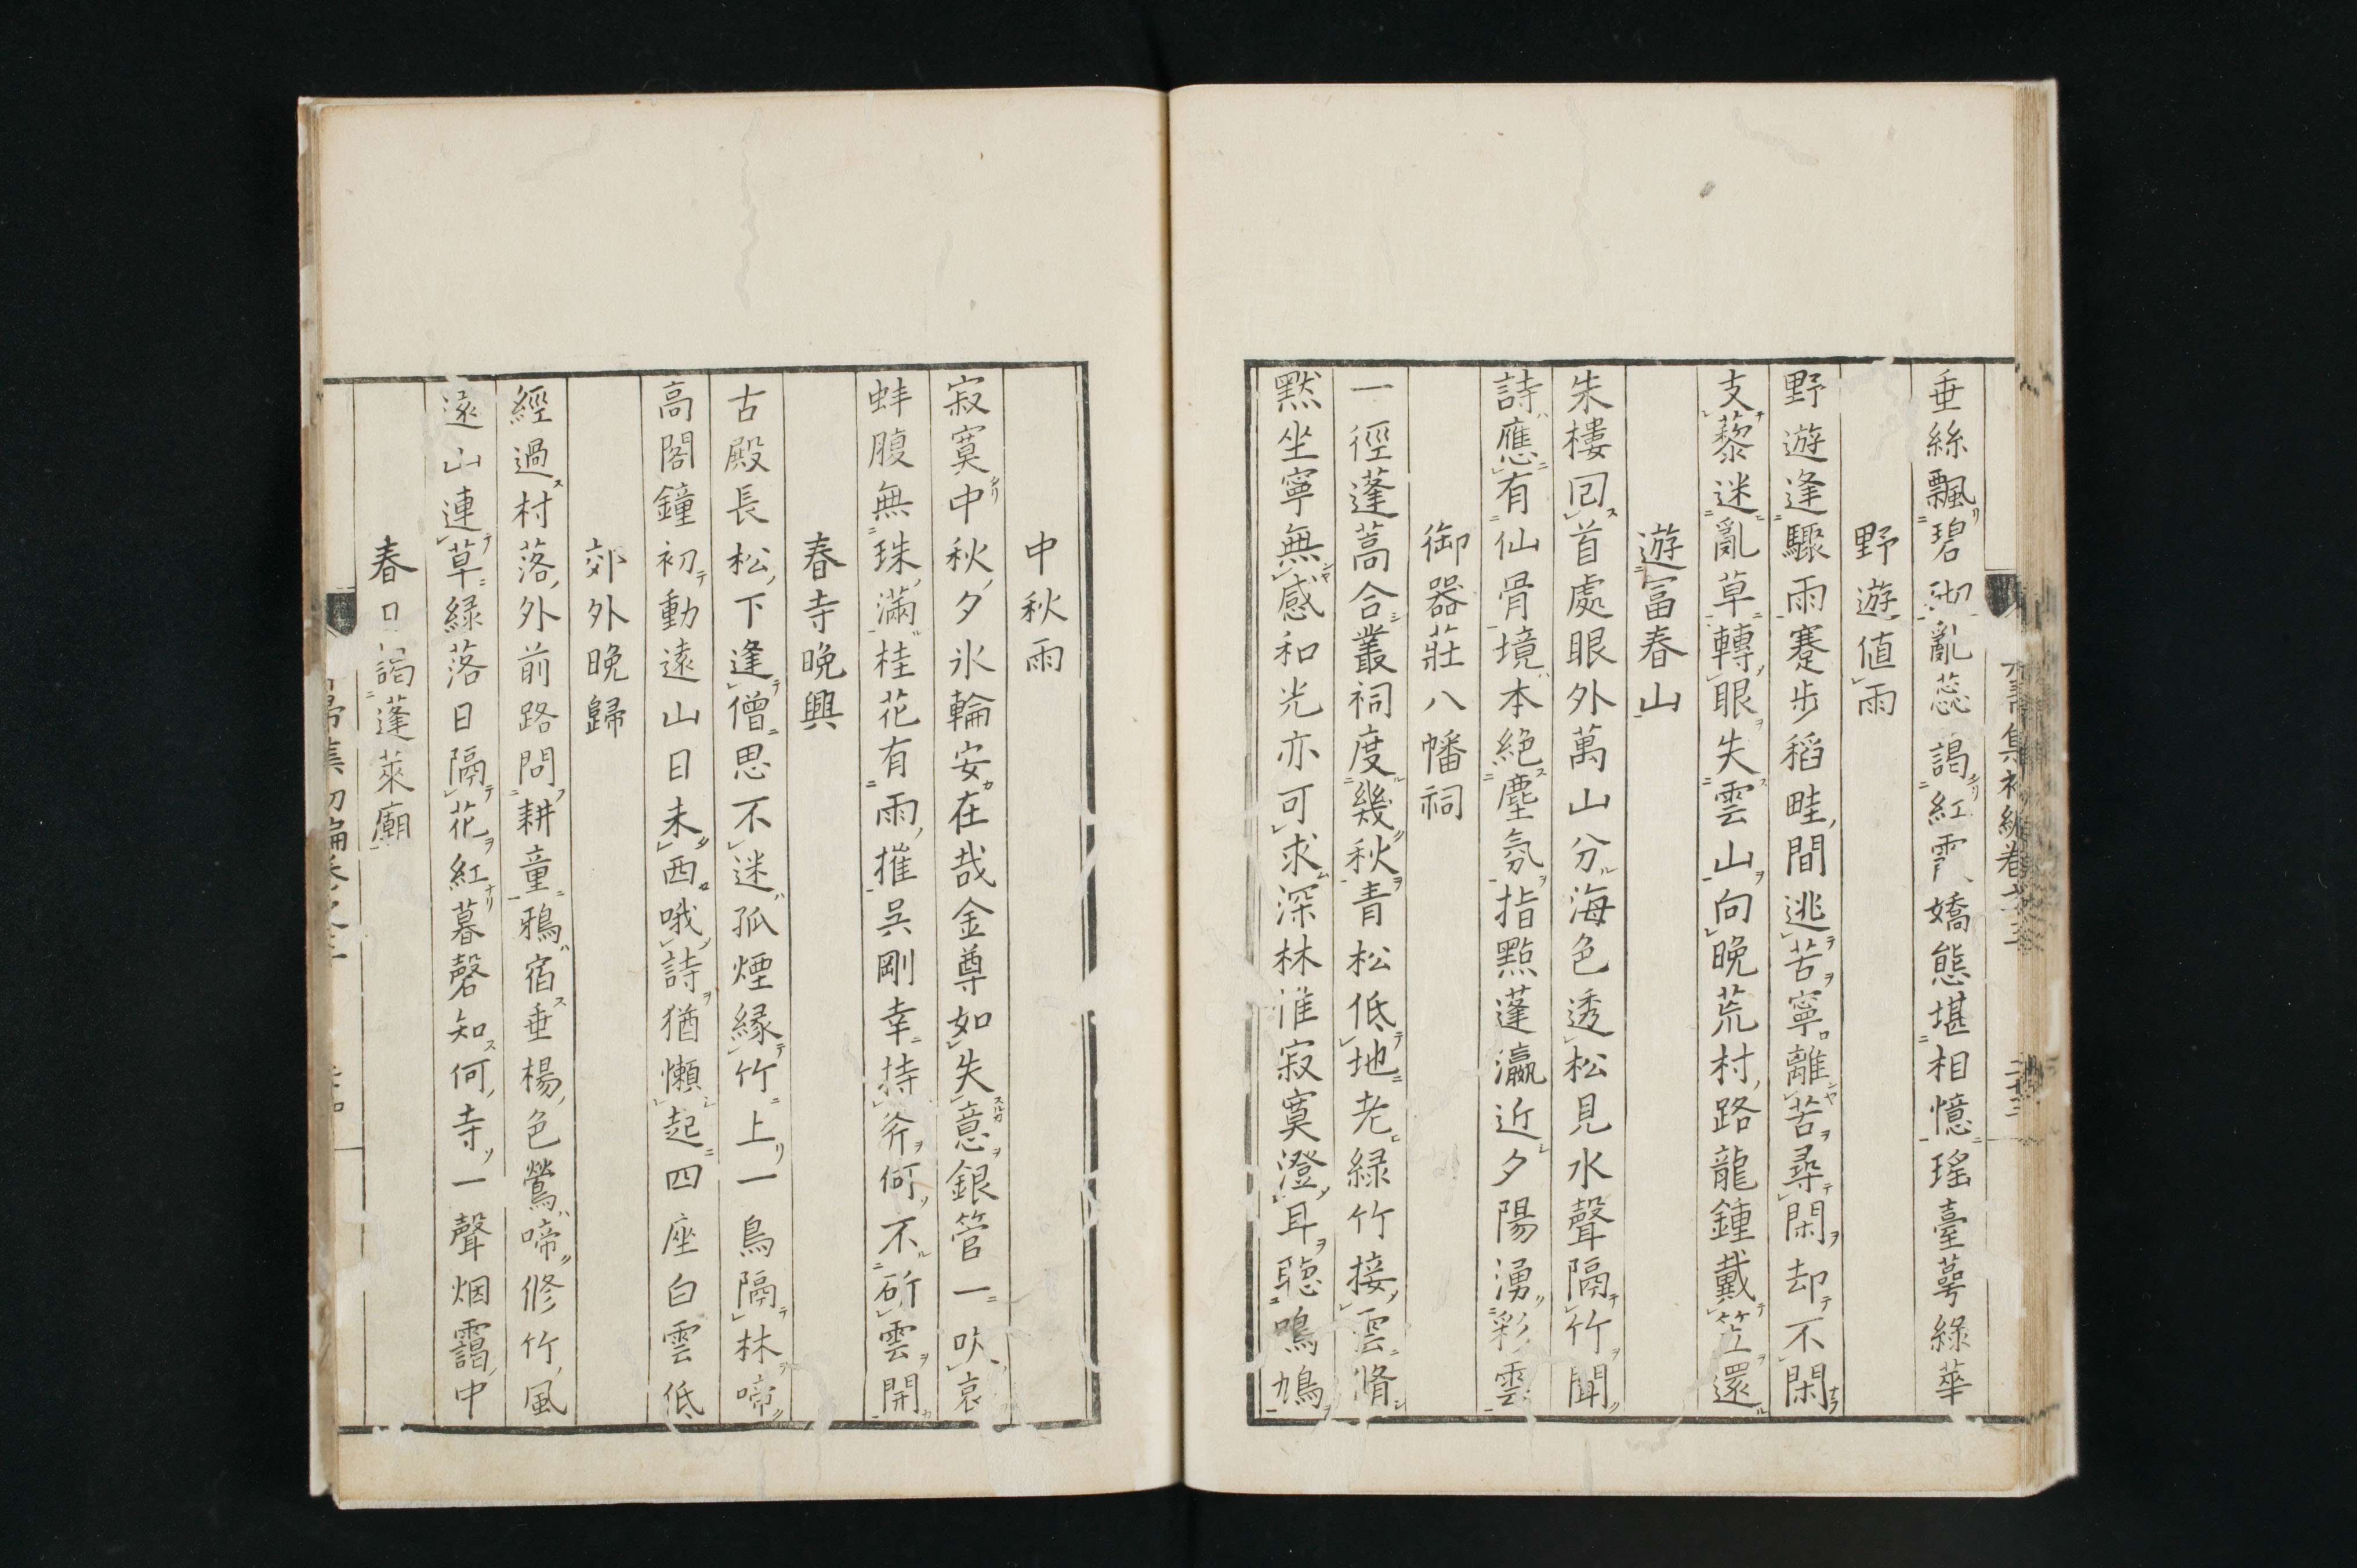 垂絲飄碧砌亂蕊謁紅霞嬌態堪相憶瑤臺萼綠華
野遊値雨
野遊逢驟雨蹇步稻畦間逃苦寧離苦尋閑却不閑
支藜迷亂草轉眼失雲山向晚荒村路龍鍾戴笠還
遊冨春山
朱樓回首處眼外萬山分海色透松見水聲隔竹聞
詩應有仙骨境本絶塵氛指點蓬瀛近夕陽湧彩雲
御器莊八幡祠
一徑蓬蒿合叢祠度幾秋青松低地老緑竹接雲脩
黙坐寧無感和光亦可求深林淮寂寞澄耳聴鳴鳩
中秋雨
寂寞中秋夕氷輪安在哉金尊如失意銀管一吹哀
蚌腹無珠滿桂花有雨摧呉剛幸持斧何不斫雲開
春寺晩興
古殿長松下逢僧思不迷孤煙縁竹上一鳥隔林啼
高閣鐘初動遠山日未西哦詩猶懶起四座白雲低
郊外晩歸
經過村落外前路問耕童鴉宿垂楊色鶯啼修竹風
遠山連草緑落日隔花紅暮磬知何寺一聲烟靄中
春日謁蓬萊廟